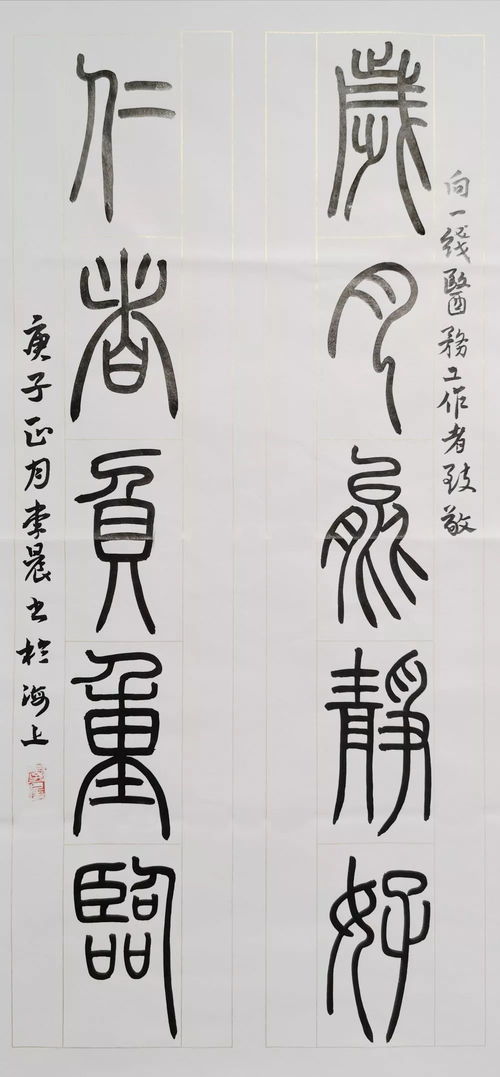 向一綫醫務工作者致敬
歲月靜好
仁者負重臨
庚子正月李晨书於海上